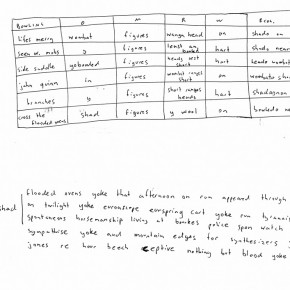 BOWLING O M R W Econ.
lifes merry wombat figures wanga head on shado on
seen w. mobs g figures least an bonded hart shado near
side saddle yabonded figures heads west short hart heado womba
john quinn in figures wombat ranges short on wombato sha
branches y figures short ranges heads hart shadagnon
cross the flooded ovens shad figures y wool on bowledo ne
flooded ovens yoke that afternoon on run appeand through
shad on twilight yoke evronscope eurspring cart yoke run tyranni
spontaneous horsemanship living at bankes police span watch
sympathise yoke and mantain edges for synthesizers
jones re hour beech ceptive nothing but blood yoke